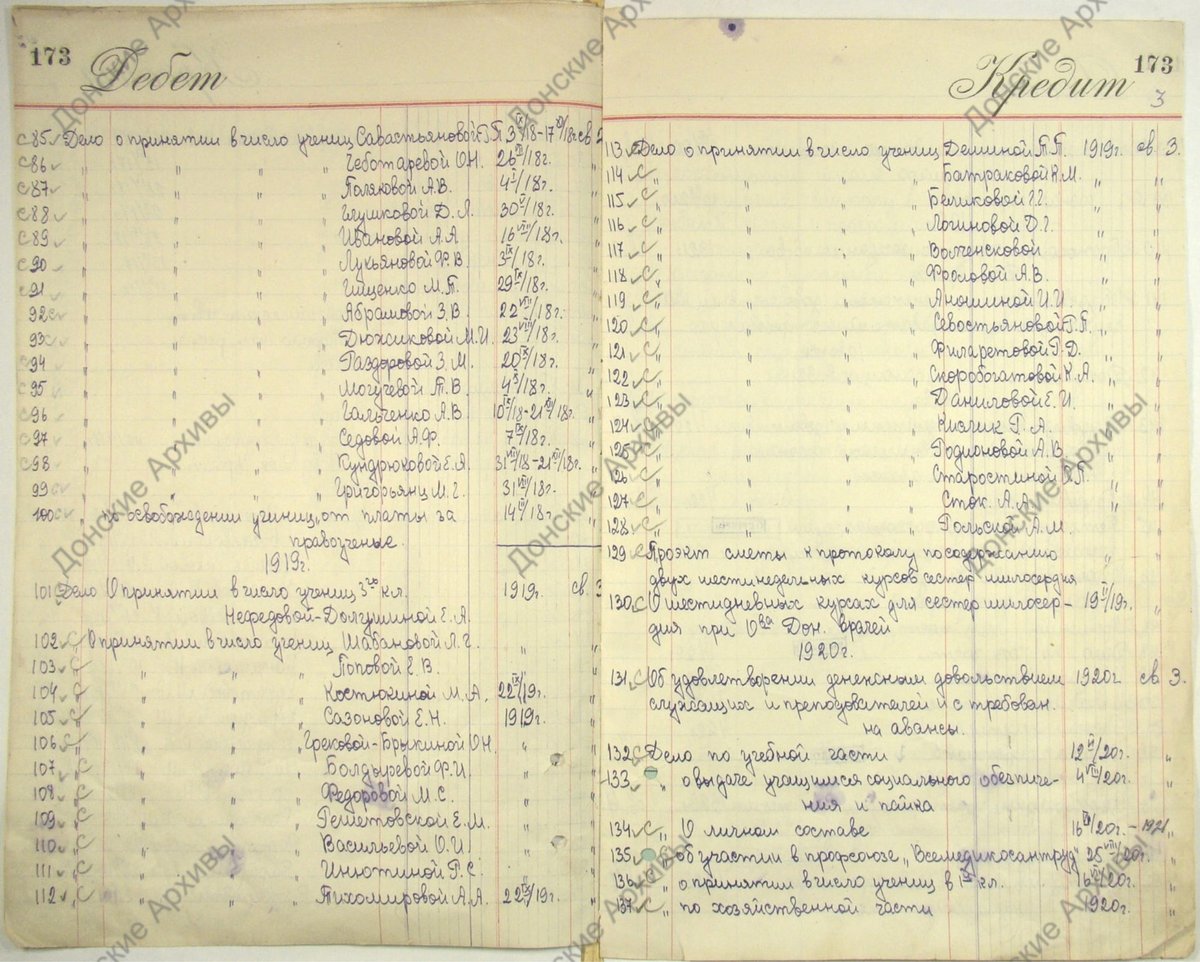 173 Дебет
с 85 Дело о принятии в число учениц Савастьяновой Г.П. 3 IX/18-17 /18г. св
с 86 " " " Чеботаревой О.Н. 26 /18г.
с 87 " " " Поляковой А.В. 4 /18г.
с 88 " " " Глушковой Д.Л. 30 /18г.
с 89 " " " Ивановой А.А 16 VIII/18г.
с 90 " " " Лукьяновой Ф.В. 3 IX/18г.
с 91 " " " Гищенко М.П. 29 IX/18г.
92 с " " " Абрамовой З.В. 22 VIII/18г.
93 с " " " Дюжиковой М.И. 23 VIII/18г.
с 94 " " " Раздоровой З.М. 20 IX/18г.
с 95 " " " Могучевой Т.В. 4 /18г.
с 96 " " " Гальченко А.В 10 IX/18-21 /18г.
с 97 " " " Седовой А.Ф. 7 IX/18г.
с 98 " " " Кундрюковой Е.Я. 31 VIII/18-21 /18г.
99 с " " " Григорьянц М.Г. 31 VIII/18г.
100 с " об освобождении учениц от платы за 14 /18г. "
правоучение.
1919г.
101 с Дело О принятии в число учениц 3го кл. 1919г. св. 3
Нефедовой-Долгушиной Е.А.
102 с О принятии в число учениц Шабановой Л.Г. "
103 с " " " Поповой Е.В. "
104 с " " " Костюкиной М.А. 22 IX/19г.
105 с " " " Сазоновой Е.Н. 1919г.
106 с " " " Грековой-Брыкиной О.Н. "
107 с " " " Болдыревой Ф.И. "
108 с " " " Федоровой М.С. "
109 с " " " Решетовской Е.М. "
110 с " " " Васильевой О.И. "
111 с " " " Инютиной Р.С. "
112 с " " " Тихомировой А.А. 22 IX/19г. "
Кредит 173
3
113 с Дело о принятии в число учениц Дешиной Т.П. 1919г. св. 3.
114 с " " " Батраковой К.М. " "
115 с " " " Беликовой Г.Г. " "
116 с " " " Логиновой О.Г. " "
117 с " " " Волченсковой " "
118 с " " " Фроловой А.В. " "
119 с " " " Аношиной И.И " "
120 с " " " Севостьяновой Г.П. " "
121 с " " " Филаретовой Р.Д. " "
122 с " " " Скоробогатовой К.А. " "
123 с " " " Даниловой Е.И. " "
124 с " " " Кизлик Р.А. " "
125 с " " " Родионовой А.В. " "
126 с " " " Старостиной П. " "
127 с " " " Сток А.А. " "
128 с " " " Гольской А.М. " "
129 с Проэкт сметы к протоколу по содержанию "
двух шестинедельных курсов сестер милосердия
130 с О шестидневных курсах для сестер милосер- 19 /19г. "
дия при Ова Дон. врачей
1920г.
131 с Об удовлетворении денежным довольствием 1920г св 3.
служащих и преподавателей и с требован.
на авансы.
132 с Дело по учебной части 12 /20г. "
133 " о выдаче учащимся социального обезпиче- 4 VIII/20г. "
ния и пайка
134 с " О личном составе 16 /20г. - 1921 "
135 " об участии в профсоюзе "Всемедикосантруд" 28 VIII/20г. "
136 с " о принятии в число учениц в 1й кл. 16 /20г. "
137 с " по хозяйственной части 1920г. "
Донские Архивы
Донские Архивы
Донские Архивы
Донские Архивы
Донские Архивы
Донские Архивы
Донские Архивы
Донские Архивы
Донские Архивы